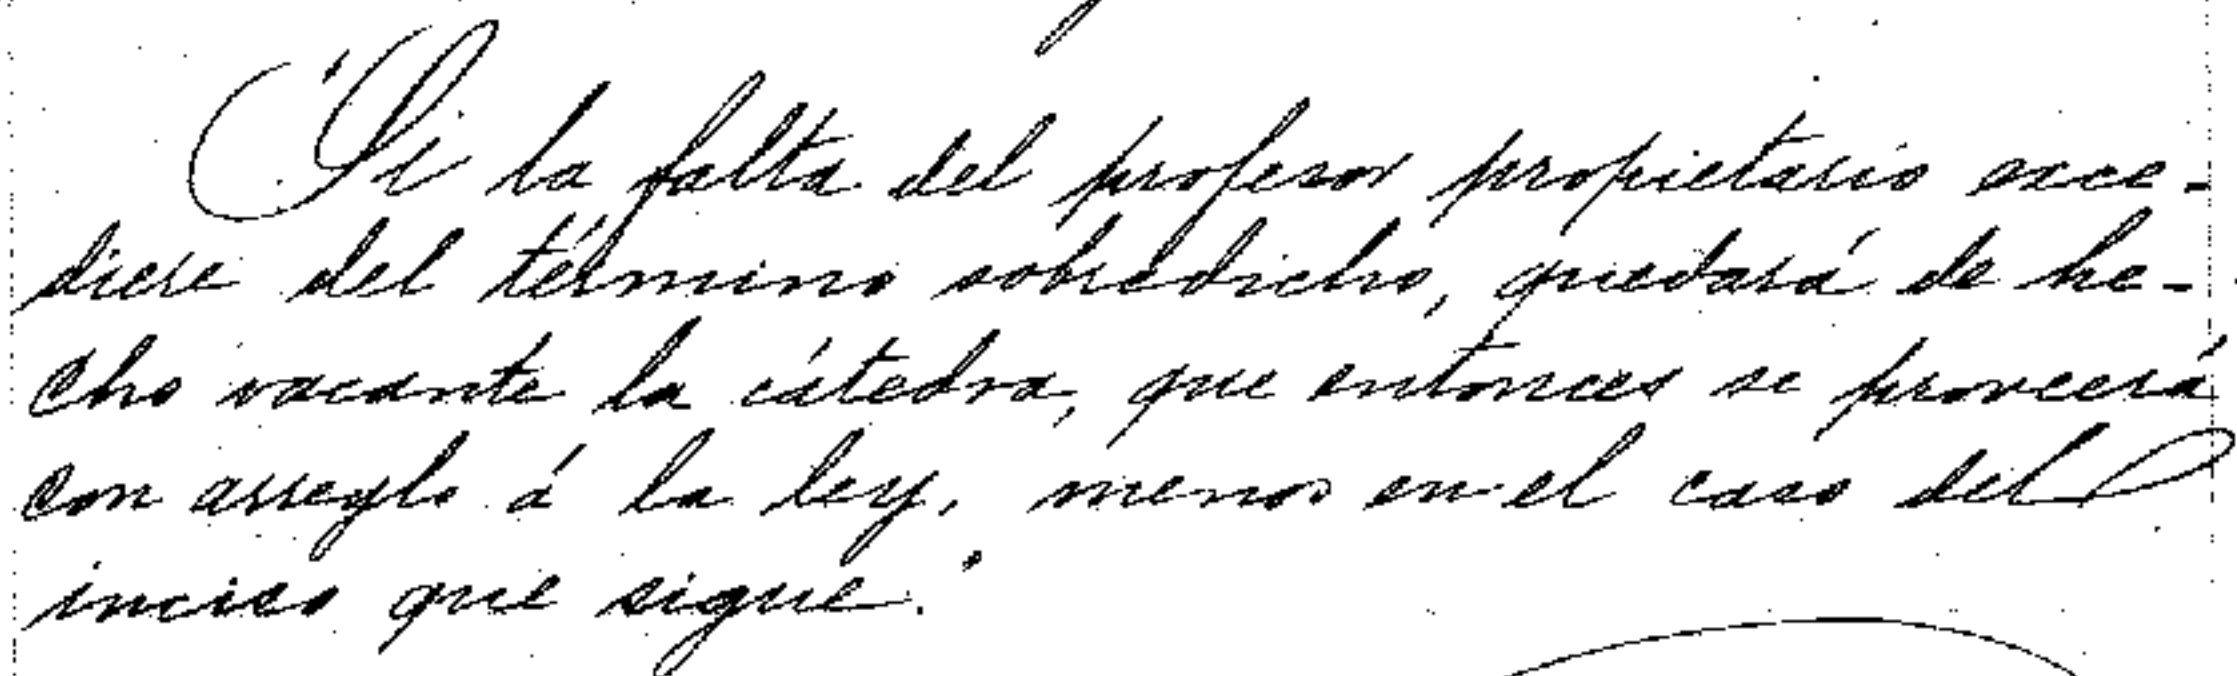 "Si la falta del profesor propietario exce-
diere del término sobredicho, quedará de he-
cho vacante la cátedra, que entonces se proveerá
con arreglo á la ley, menos en el caso del
inciso que sigue."